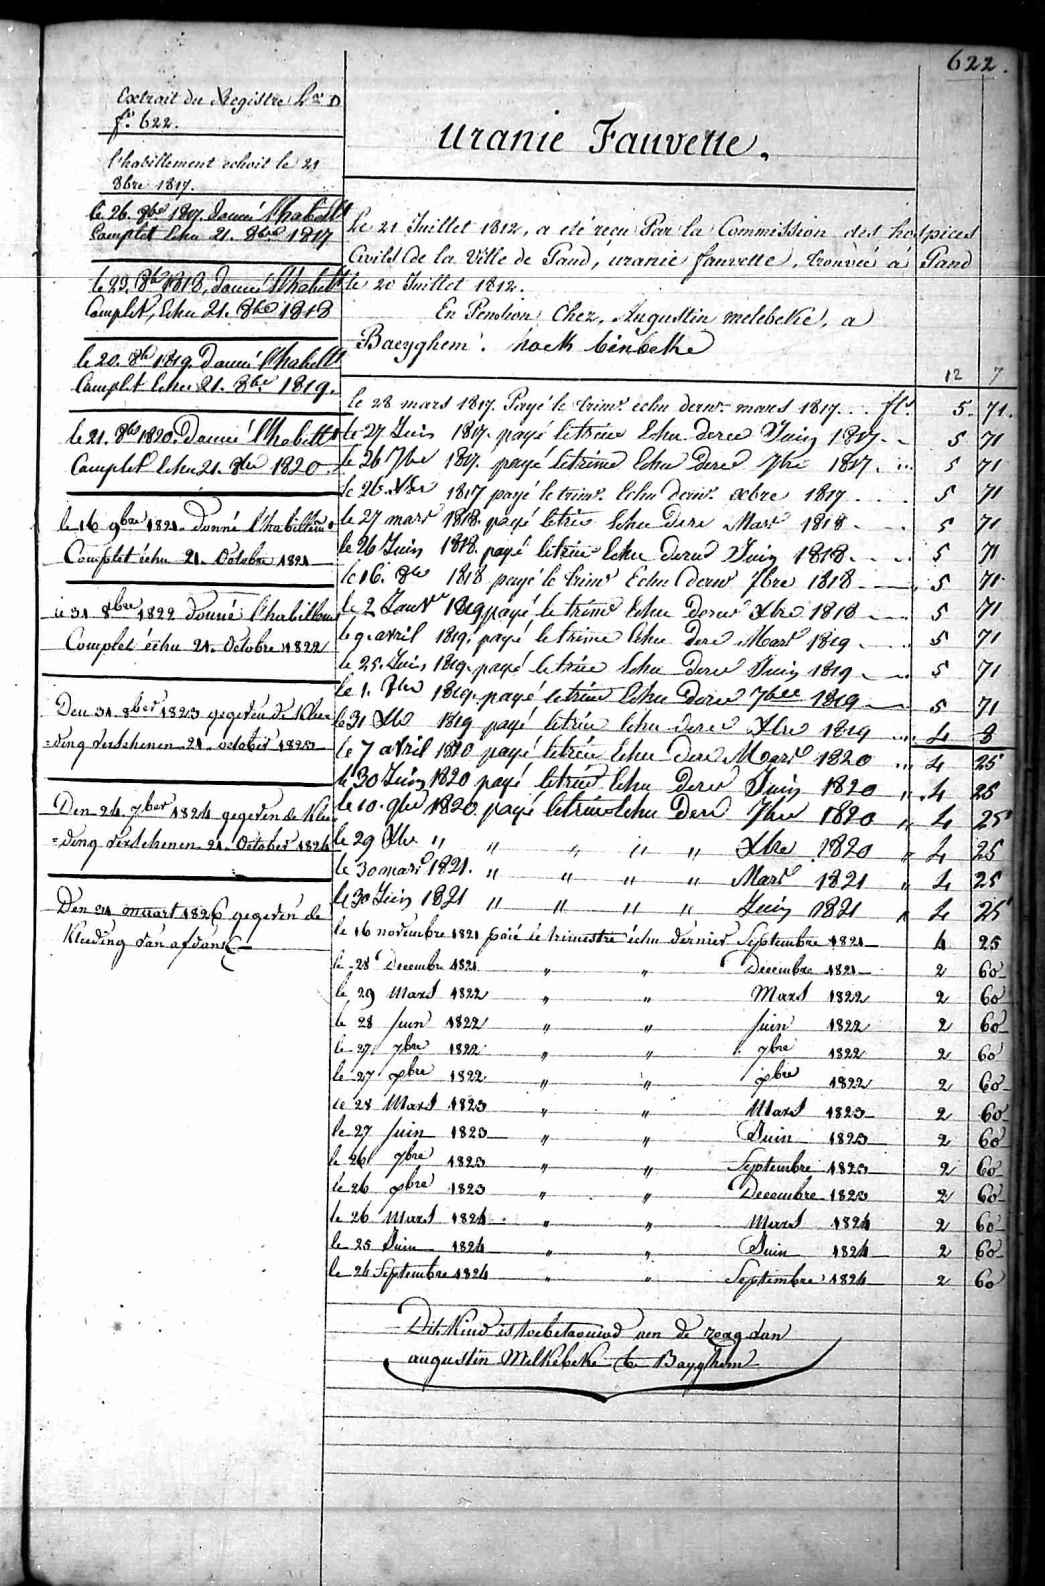 622.
Extrait du Registre Lre D
fo. 622.
l'habillement echoit le 21
8bre 1817.
le 26. 8bre 1817. donné l'habillt
Complet Echu 21. 8bre 1817
le 23. 8bre 1818, donné l'habillt
Complet, Echu 21. 8bre 1818
le 20. 8bre 1819. Donné l'habillt
Complet Echu 21. 8bre 1819.
le 21. 8bre 1820. Donné l'habillt
Complet Echu 21. 8bre 1820
le 16 9bre 1821. donné l'habillem
Complet échu 21. Octobre 1821
le 31 8bre 1822 donné l'habillem
Complet échu 21. Octobre 1822
Den 31. 8ber 1823 gegeven de Klee
=ding verschenen 21 october 1823
Den 24 7ber 1824 gegeven de Klee
=ding verschenen 21. October 1824
Den 31 maart 1826 gegeven de
Kleeding van afdank
Uranie Fauvette.
Le 21 Juillet 1812, a eté reçu Par la Commission des hospices
Civils de la Ville de Gand, uranie fauvette, trouvée a Gand
le 20 Juillet 1812.
En Pension Chez, Augustin melebeke, a
Baeyghem.
12 7
le 28 mars 1817. Payé le trimr. echu dernr. mars 1817 . . . fls. 5. 71.
le 27 Juin 1817. payé le trim Echu dern Juin 1817. - 5 71
le 26 7bre 1817. payé le trim Echu dern 7bre 1817. ... 5 71
le 26. Xbre 1817 payé le trimr. Echu dernr. xbre 1817. . . . . 5 71
le 27 mars 1818. payé le trim Echu dern Mars 1818 - . . . 5 71
le 26 Juin 1818. payé le trim Echu dern Juin 1818. - . . . 5 71
le 16. 8bre 1818 payé le trimr Echu dernr 7bre 1818 . 5 71
le 2 Janvr 1819 payé, le trim Echu dern Xbre 1818 - . . . 5 71
le 9. avril 1819. payé le trim Echu dern Mars 1819 - . . . . 5 71
le 25. Juin 1819. payé le trim Echu dern Juin 1819 - . . 5 71
le 1. 8bre 1819. payé, le trim Echu Dern 7bre 1819 5 71
le 31 Xbre 1819 payé le trim Echu dern Xbre 1819 ... 4 8
le 7 avril 1820 payé le trim Echu dern Mars 1820 ... 4 25
le 30 Juin 1820 payé le trim Echu Dern Juin 1820 " 4 25
le 10. 9bre 1820. payé le trim Echu Dern 7bre 1820 " 4 25
le 29 Xbre " " " " " Xbre 1820 " 4 25
le 30 mars 1821. " " " " Mars 1821 " 4 25
le 30 Juin 1821 " " " " Juin 1821 " 4 25
le 16 novembre 1821 paié le trimestre échu dernier Septembre 1821 4 25
le 28 Decembre 1821 " " Decembre 1821 2 60
le 29 Mars 1822 " " Mars 1822 2 60
le 28 Juin 1822 " " Juin 1822 2 60
le 27 7bre 1822 " " 7bre 1822 2 60
le 27 xbre 1822 " " xbre 1822 2 60
le 28 Mars 1823 " " Mars 1823 2 60
le 27 Juin 1823 " " Juin 1823 2 60
le 26 7bre 1823 " " Septembre 1823 2 60
le 26 xbre 1823 " " Decembre 1823 2 60
le 26 Mars 1824 " " Mars 1824 2 60
le 25 Juin 1824 " " Juin 1824 2 60
le 24 Septembre 1824 " " Septembre 1824 2 60
Dit Kind is toebetrouwd aen de zorg van
augustin Melkebeke te Bayghem